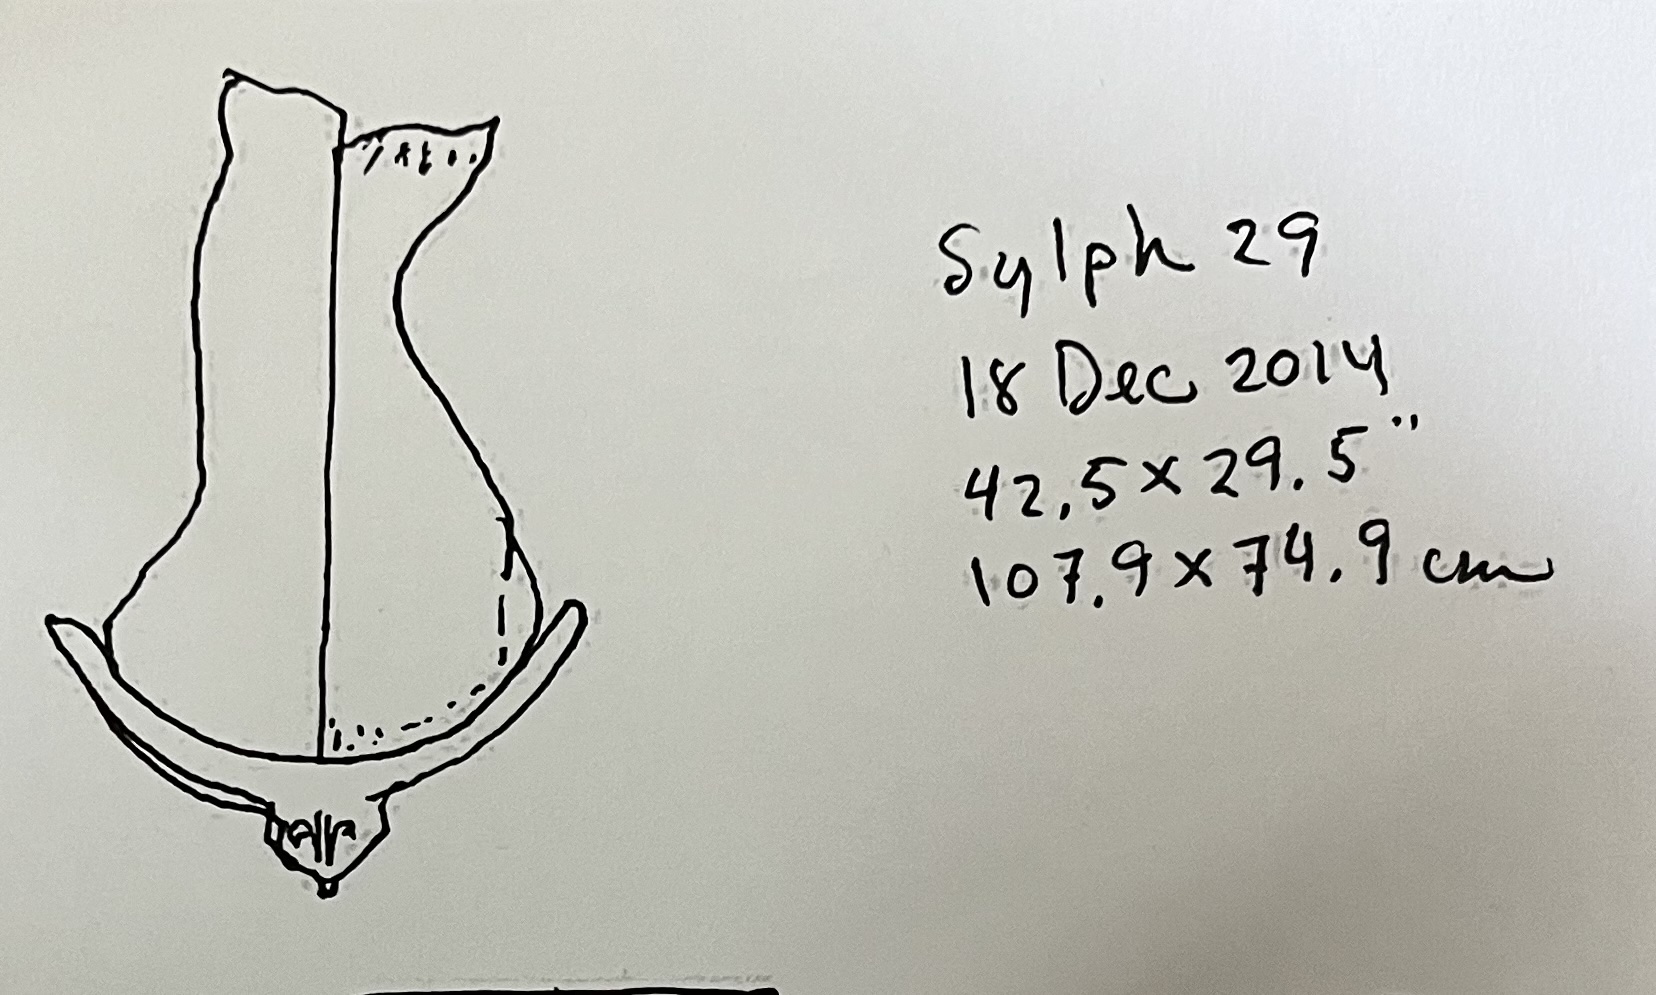 Sylph 29
18 Dec 2014
42.5 x 29.5"
107.9 x 74.9 cm